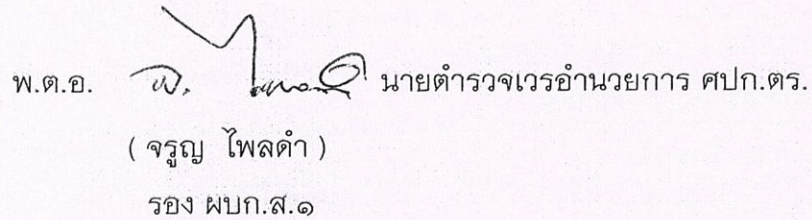 พ.ต.อ. นายตำรวจเวรอำนวยการ ศปก.ตร.
( จรูญ ไพลดำ )
รอง ผบก.ส.๑